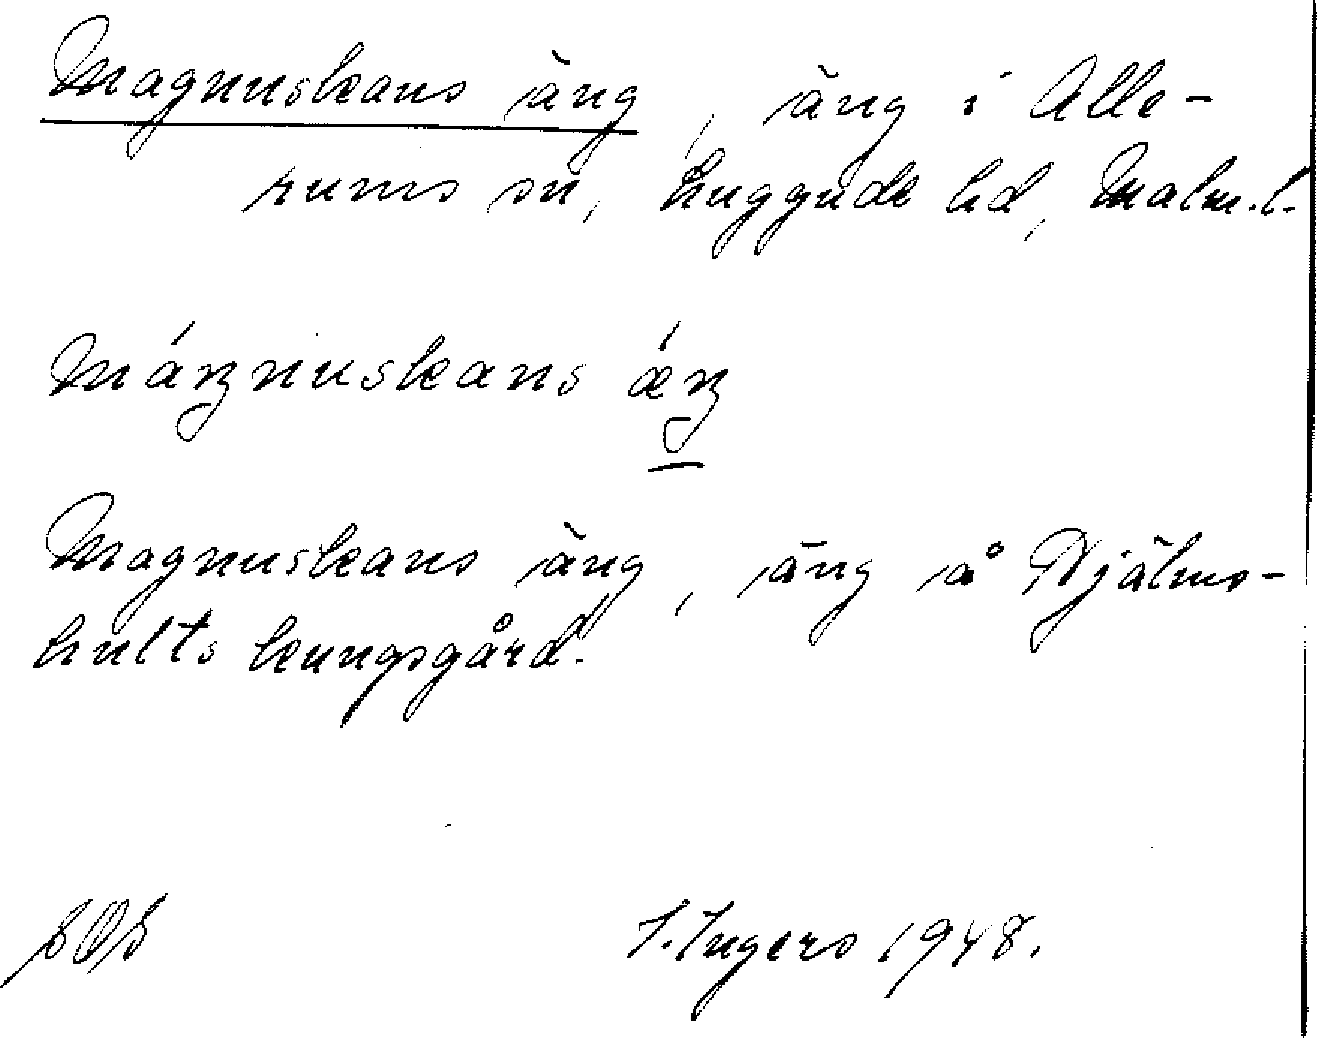 Magnuskans äng, äng i Alle-
rums sn, Luggude hd, Malm.l.
máŋnuskans ǽŋ
Magnuskans äng, äng å Hjälms-
hults kungsgård.
I. Ingers 1948.